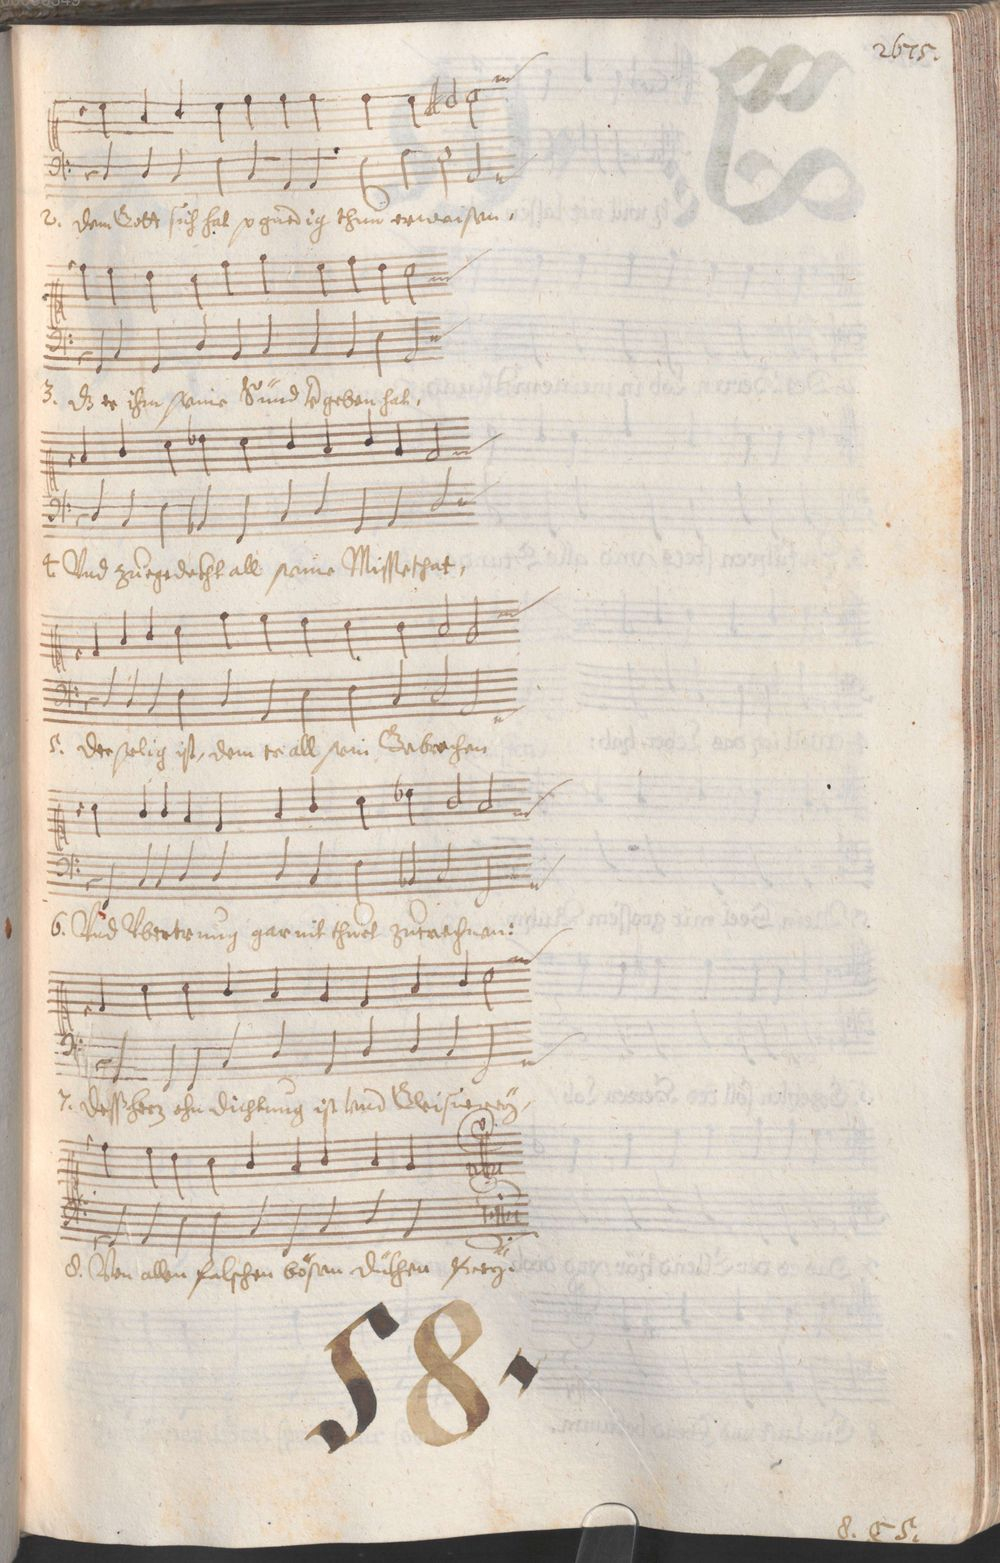 2675.
2. dem Gott sich hat so gnedig thun erweisen,
3. dz er ihm seine Sünd vergeben hat,
4 Vnd zuegedeckt all seine Missethat,
5. Der selig ist, dem er all sein Gebrechen
6. Vnd Vbertretung gar nit thuet zurechnen:
7. Dess hertz ohn dichtung ist vnd Gleisnerey,
8. Von allen falschen bösen dückhen frey.
58.